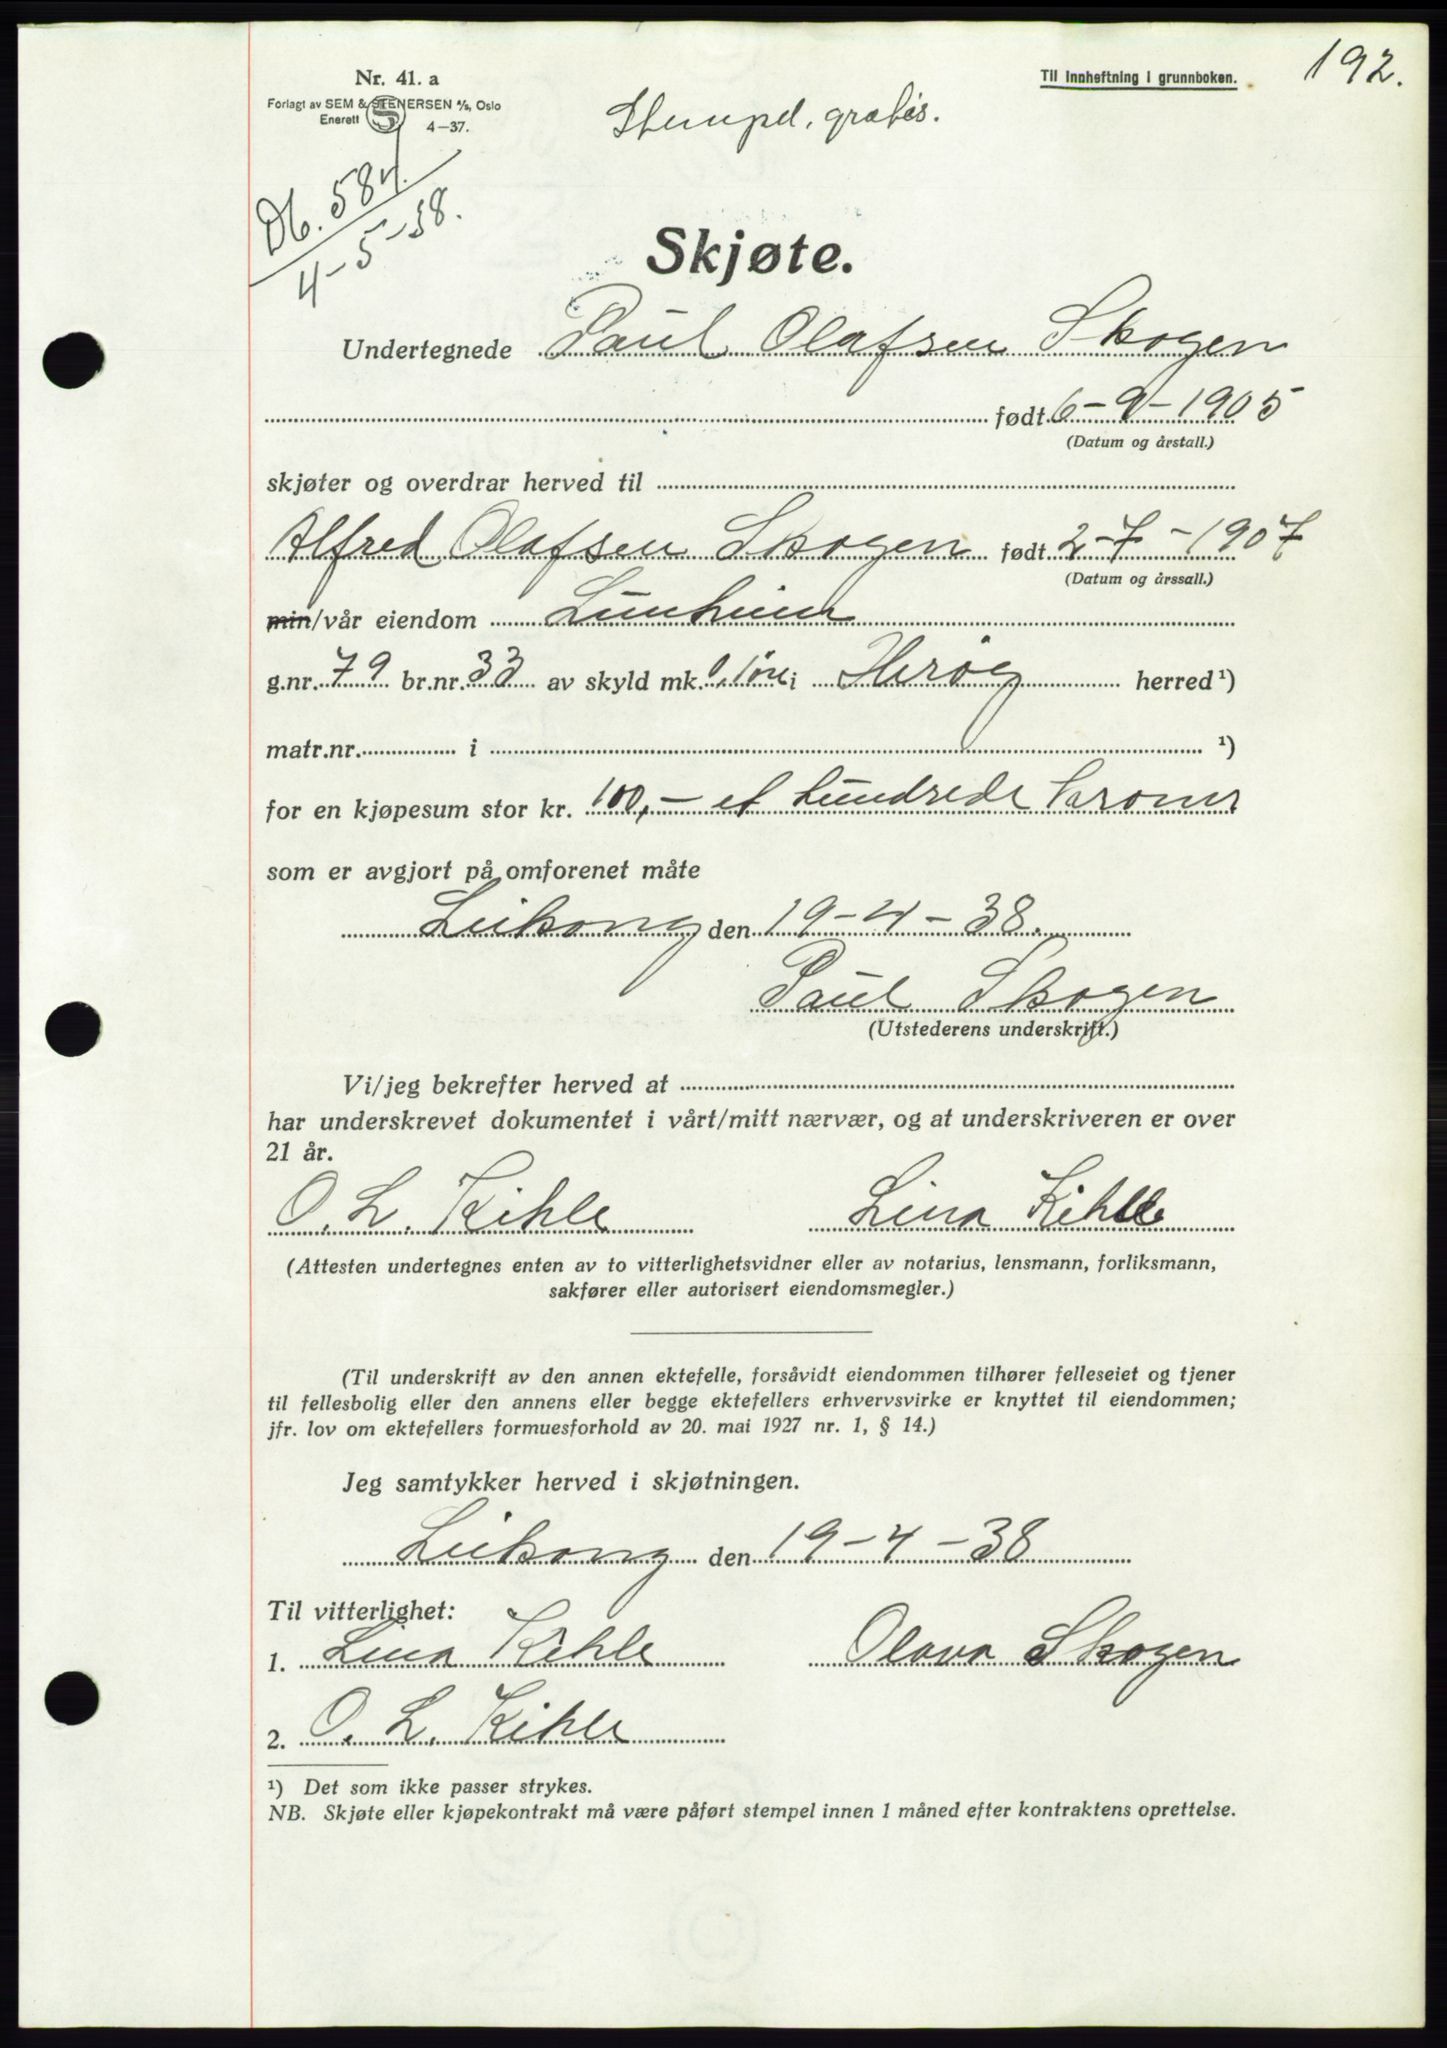 192.
Nr. 41. a
Til innheftning i grunnboken.
Forlagt av SEM & STENERSEN A/S, Oslo
Enerett
4—37.
Stempel, gratis.
Db. 584.
4-5-38.
Skjøte.
Undertegnede Paul Olafsen Skogen
født 6-9-1905
(Datum og årstall.)
skjøter og overdrar herved til
Alfred Olafsen Skogen født 2-7-1907
(Datum og årssall.)
min/vår eiendom
g.nr. 79 br.nr. 33 av skyld mk. 0, 1 øre i Herøy herred ¹)
matr.nr. i ¹)
for en kjøpesum stor kr. 100,- et hundrede kroner
som er avgjort på omforenet måte
Leikong den 19-4-38.
Paul Skogen
(Utstederens underskrift.)
Vi/jeg bekrefter herved at
har underskrevet dokumentet i vårt/mitt nærvær, og at underskriveren er over
21 år.
O. L. Kihle Lina Kihle
(Attesten undertegnes enten av to vitterlighetsvidner eller av notarius, lensmann, forliksmann,
sakfører eller autorisert eiendomsmegler.)
(Til underskrift av den annen ektefelle, forsåvidt eiendommen tilhører felleseiet og tjener
til fellesbolig eller den annens eller begge ektefellers erhvervsvirke er knyttet til eiendommen;
jfr. lov om ektefellers formuesforhold av 20. mai 1927 nr. 1, § 14.)
Jeg samtykker herved i skjøtningen.
Leikong den 19-4-38
Til vitterlighet:
1. Lina Kihle Olava Skogen
2. O. L. Kihle
¹) Det som ikke passer strykes.
NB. Skjøte eller kjøpekontrakt må være påført stempel innen 1 måned efter kontraktens oprettelse.